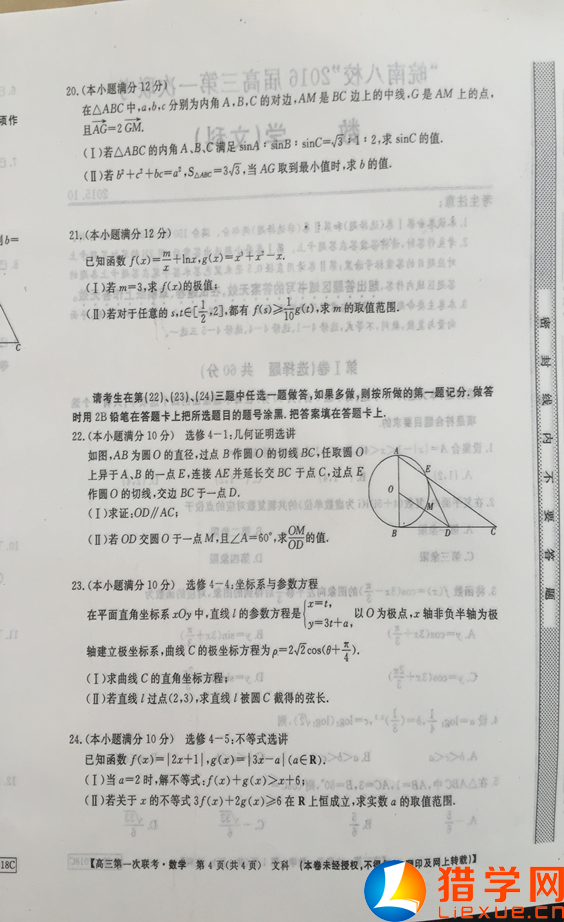 20.(本小题满分12分)
在△ABC中,a,b,c分别为内角A,B,C的对边,AM是BC边上的中线,G是AM上的点,
且AG=2 GM.
(Ⅰ)若△ABC的内角A、B、C满足sinA∶sinB∶sinC=√3∶1∶2,求sinC的值.
(Ⅱ)若b²+c²+bc=a²,S△ABC=3√3,当AG取到最小值时,求b的值.
21.(本小题满分12分)
已知函数f(x)=m/x+lnx,g(x)=x³+x²-x.
(Ⅰ)若m=3,求f(x)的极值;
(Ⅱ)若对于任意的s,t∈[1/2,2],都有f(s)≥1/10 g(t),求m的取值范围.
请考生在第(22)、(23)、(24)三题中任选一题做答,如果多做,则按所做的第一题记分.做答
时用2B铅笔在答题卡上把所选题目的题号涂黑.把答案填在答题卡上.
22.(本小题满分10分) 选修4-1:几何证明选讲
如图,AB为圆O的直径,过点B作圆O的切线BC,任取圆O
上异于A、B的一点E,连接AE并延长交BC于点C,过点E
作圆O的切线,交边BC于一点D.
(Ⅰ)求证:OD∥AC;
(Ⅱ)若OD交圆O于一点M,且∠A=60°,求OM/OD的值.
A
E
O
M
B
D
C
23.(本小题满分10分) 选修4-4:坐标系与参数方程
在平面直角坐标系xOy中,直线l的参数方程是{x=t, y=3t+a, 以O为极点,x轴非负半轴为极
轴建立极坐标系,曲线C的极坐标方程为ρ=2√2cos(θ+π/4).
(Ⅰ)求曲线C的直角坐标方程;
(Ⅱ)若直线l过点(2,3),求直线l被圆C截得的弦长.
24.(本小题满分10分) 选修4-5:不等式选讲
已知函数f(x)=|2x+1|,g(x)=|3x-a|(a∈R).
(Ⅰ)当a=2时,解不等式:f(x)+g(x)>x+6;
(Ⅱ)若关于x的不等式3f(x)+2g(x)≥6在R上恒成立,求实数a的取值范围.
【高三第一次联考·数学 第4页(共4页) 文科 (本卷未经授权,不得翻印及网上转载)】
密封线内不要答题
项作
b=
C
18C
猎学网
Liexue.cn